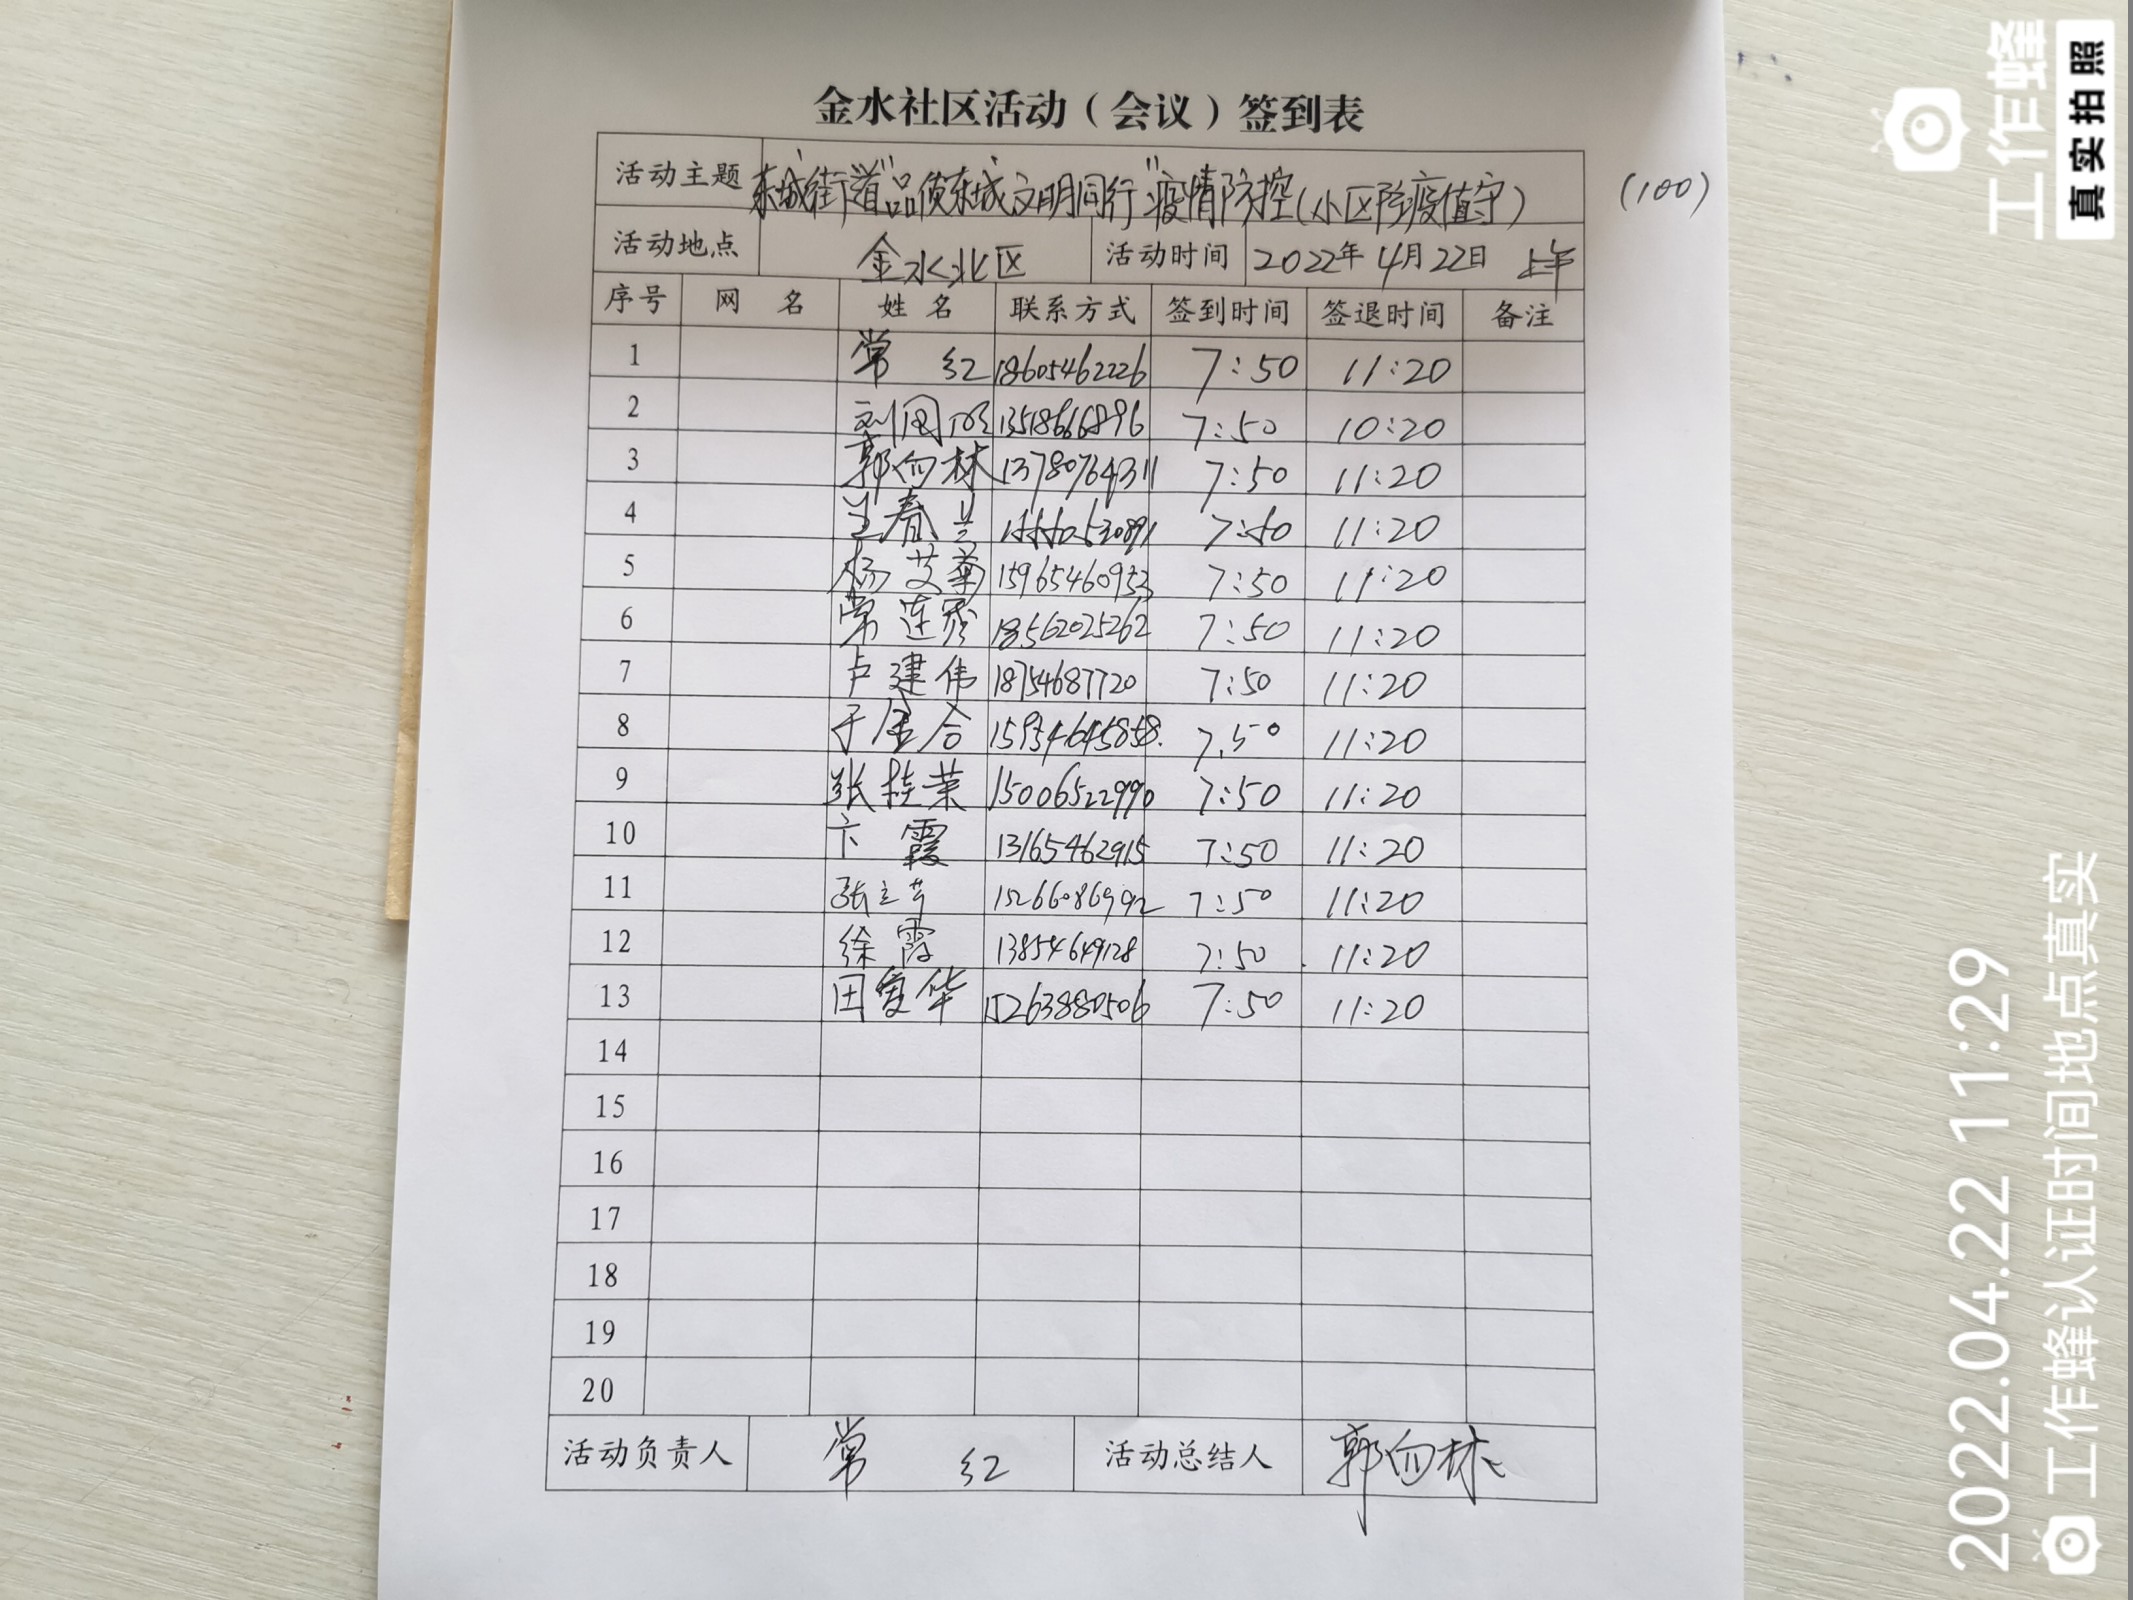 金水社区活动（会议）签到表
活动主题 东城街道"品质东城 文明同行"疫情防控(小区防疫值守) (100)
活动地点 金水北区 活动时间 2022年4月22日 上午
序号 网 名 姓 名 联系方式 签到时间 签退时间 备注
1 常 红 18605462226 7:50 11:20
2 刘国 13518666896 7:50 10:20
3 郭向林 13780764311 7:50 11:20
4 兰春兰 7:50 11:20
5 杨艾菊 15965460953 7:50 11:20
6 常连 18562025262 7:50 11:20
7 卢建伟 18754687720 7:50 11:20
8 于金合 7:50 11:20
9 张桂荣 15006522990 7:50 11:20
10 卞 霞 13165462915 7:50 11:20
11 张立芳 15266086992 7:50 11:20
12 徐霞 13854649128 7:50 11:20
13 田爱华 15263880506 7:50 11:20
14
15
16
17
18
19
20
活动负责人 常 红 活动总结人 郭向林
工作蜂
真实拍照
2022.04.22 11:29
工作蜂认证时间地点真实